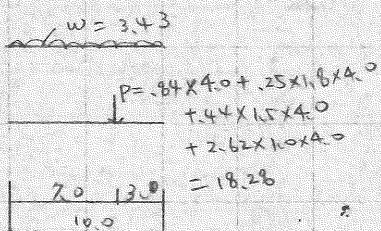 w = 3.43
P = .84×4.0 + .25×1.8×4.0
+ .44×1.5×4.0
+ 2.62×1.0×4.0
= 18.28
7.0 3.0
10.0